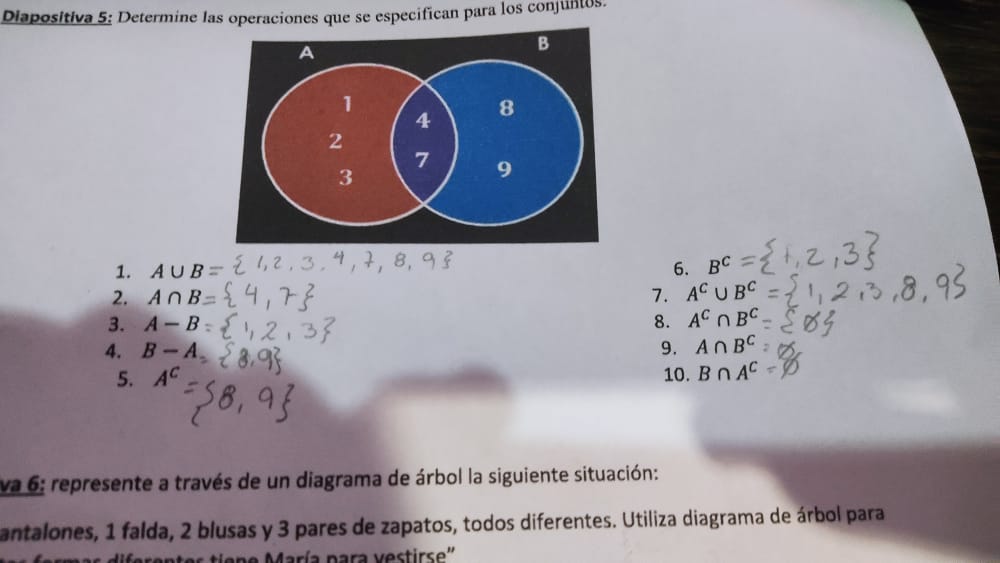 Diapositiva 5: Determine las operaciones que se especifican para los conjuntos.
A B
1 4 8
2 7 9
3
1. A ∪ B = {1, 2, 3, 4, 7, 8, 9}
2. A ∩ B = {4, 7}
3. A − B = {1, 2, 3}
4. B − A = {8, 9}
5. Aᶜ = {8, 9}
6. Bᶜ = {1, 2, 3}
7. Aᶜ ∪ Bᶜ = {1, 2, 3, 8, 9}
8. Aᶜ ∩ Bᶜ = {∅}
9. A ∩ Bᶜ = ∅
10. B ∩ Aᶜ = ∅
va 6: represente a través de un diagrama de árbol la siguiente situación:
antalones, 1 falda, 2 blusas y 3 pares de zapatos, todos diferentes. Utiliza diagrama de árbol para
formas diferentes tiene María para vestirse”